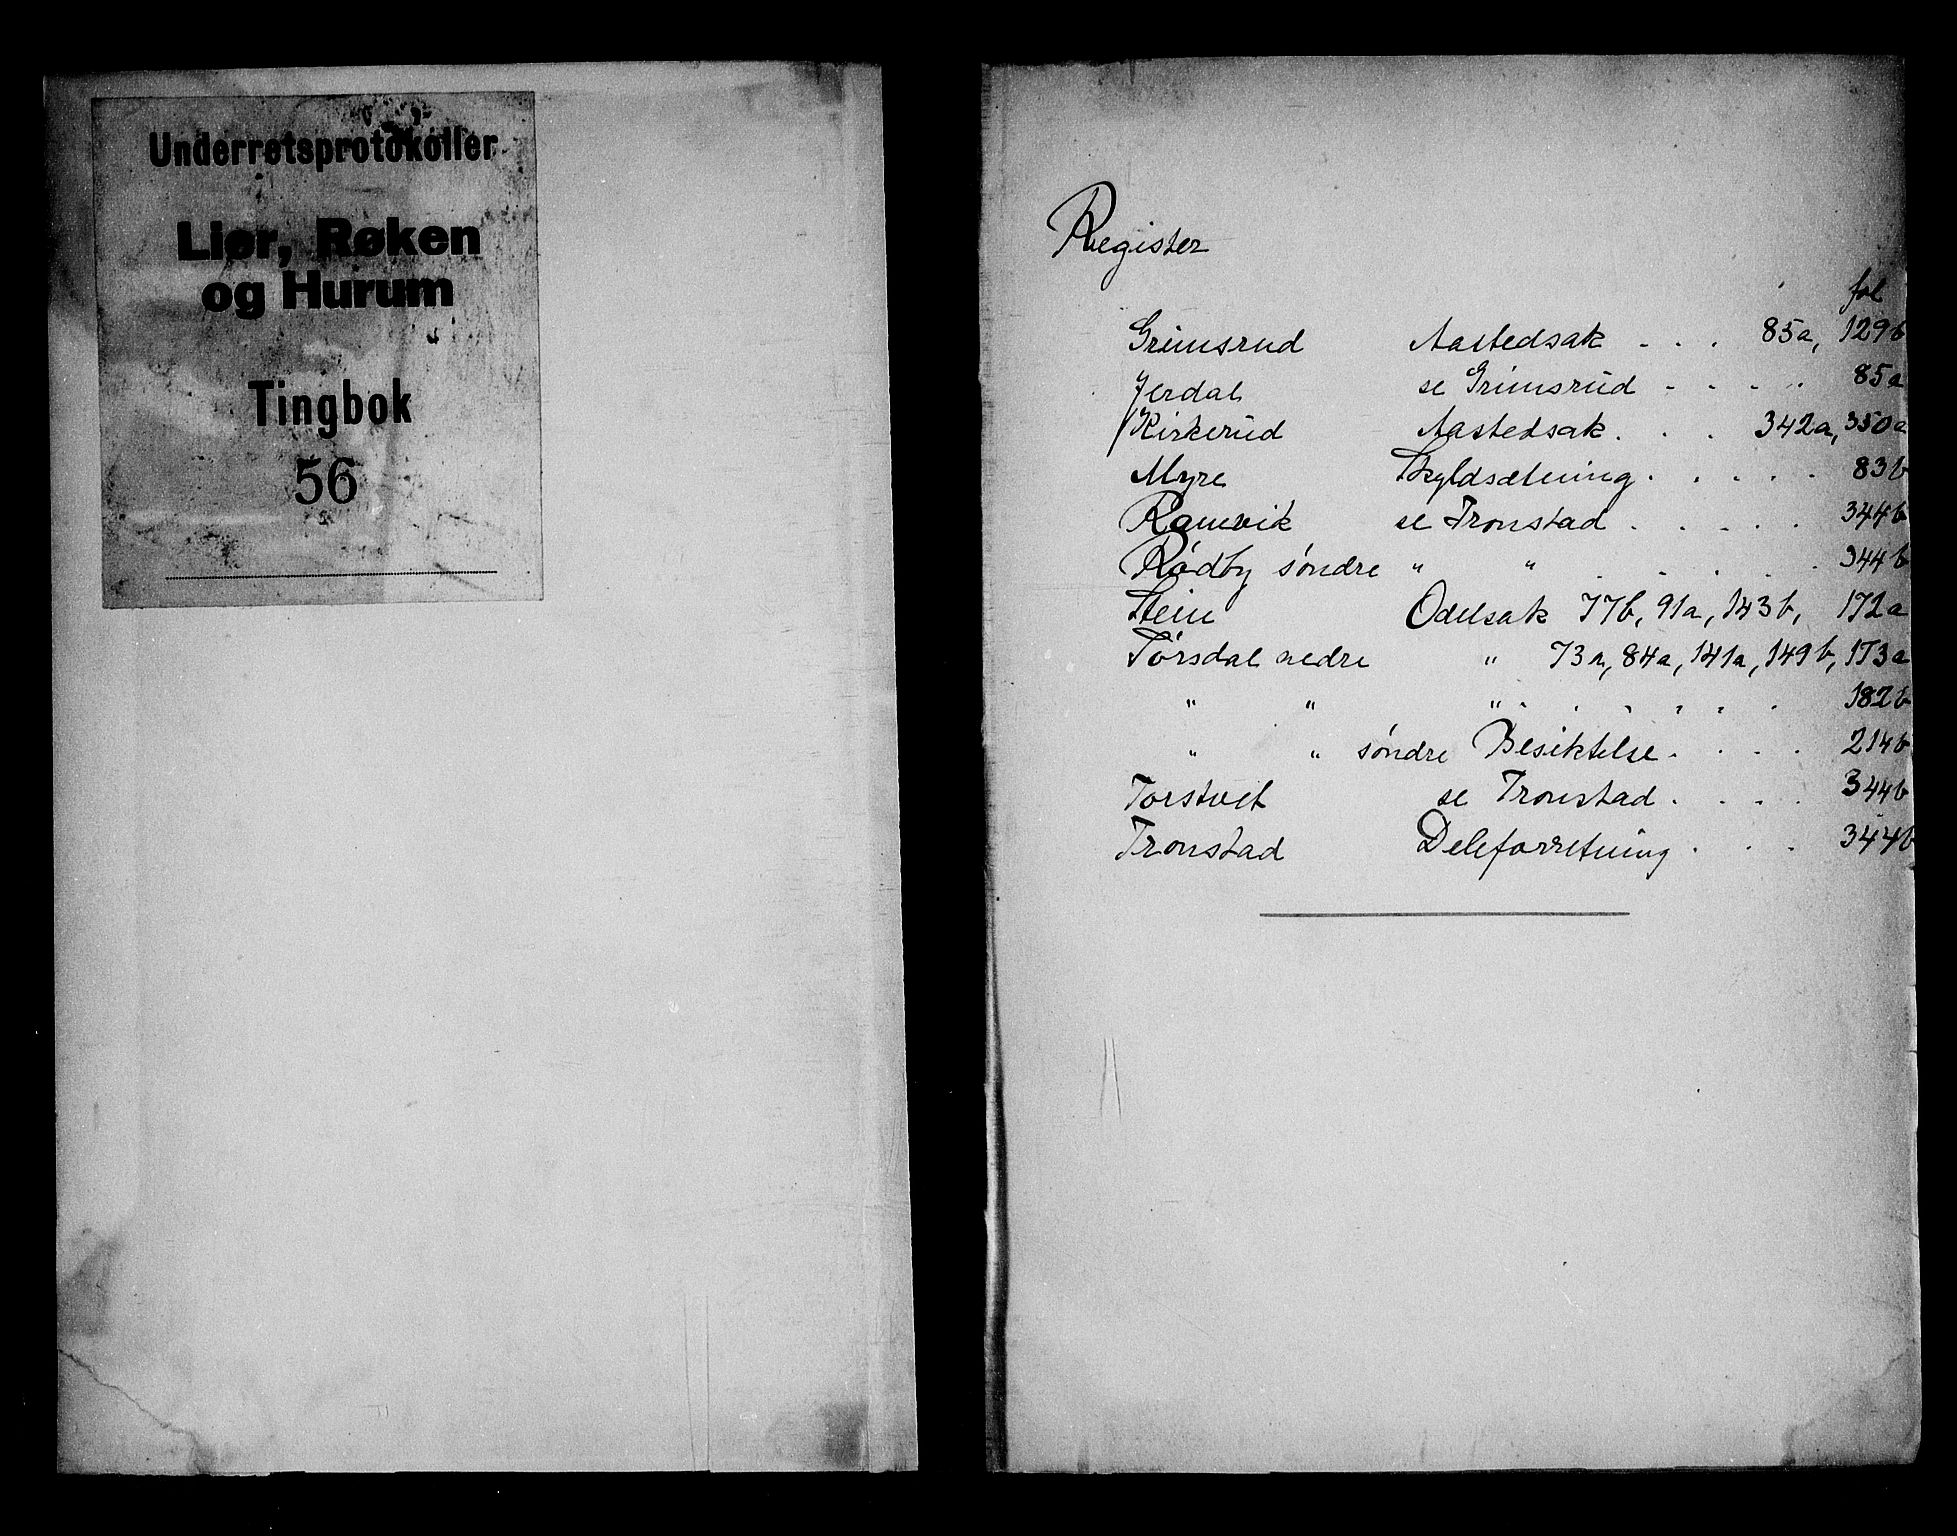 Underretsprotokoller
Lier, Røken
og Hurum
Tingbok
56
Register
fol
Grimsrud Aastedsak . . . 85a, 129b
Jerdal se Grimsrud . . . . 85a
Kirkerud Aastedsak . . . 342a, 350a
Myre Skyldsætning . . . . . 83b
Ramvik se Tronstad . . . . . 344b
Rødby søndre " " . . . . . 344b
Stein Odelsak 77b, 91a, 143b, 172a
Tørsdal nedre " 73a, 84a, 141a, 149b, 173a
" " " . . . . . . 182b
" " søndre Besiktelse . . . . 214b
Torstvet se Tronstad . . . . 344b
Tronstad Deleforretning . . . 344b